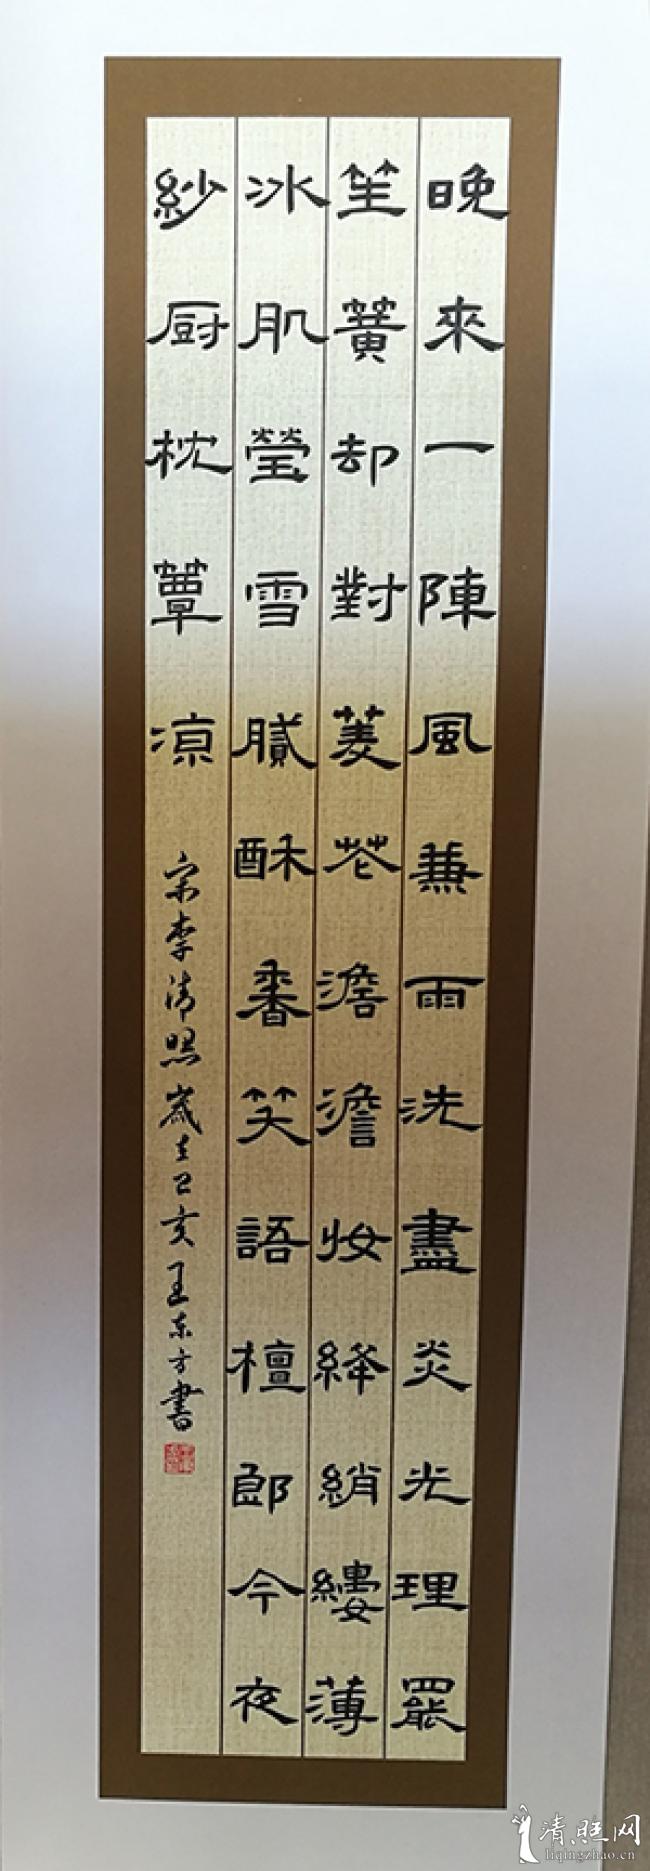 晚來一陣風兼雨洗盡炎光理罷
笙簧却對菱花澹澹妝絳綃縷薄
冰肌瑩雪膩酥香笑語檀郎今夜
紗厨枕簟凉
宋李清照歲在己亥王东方書
清照网
liqingzhao.cn